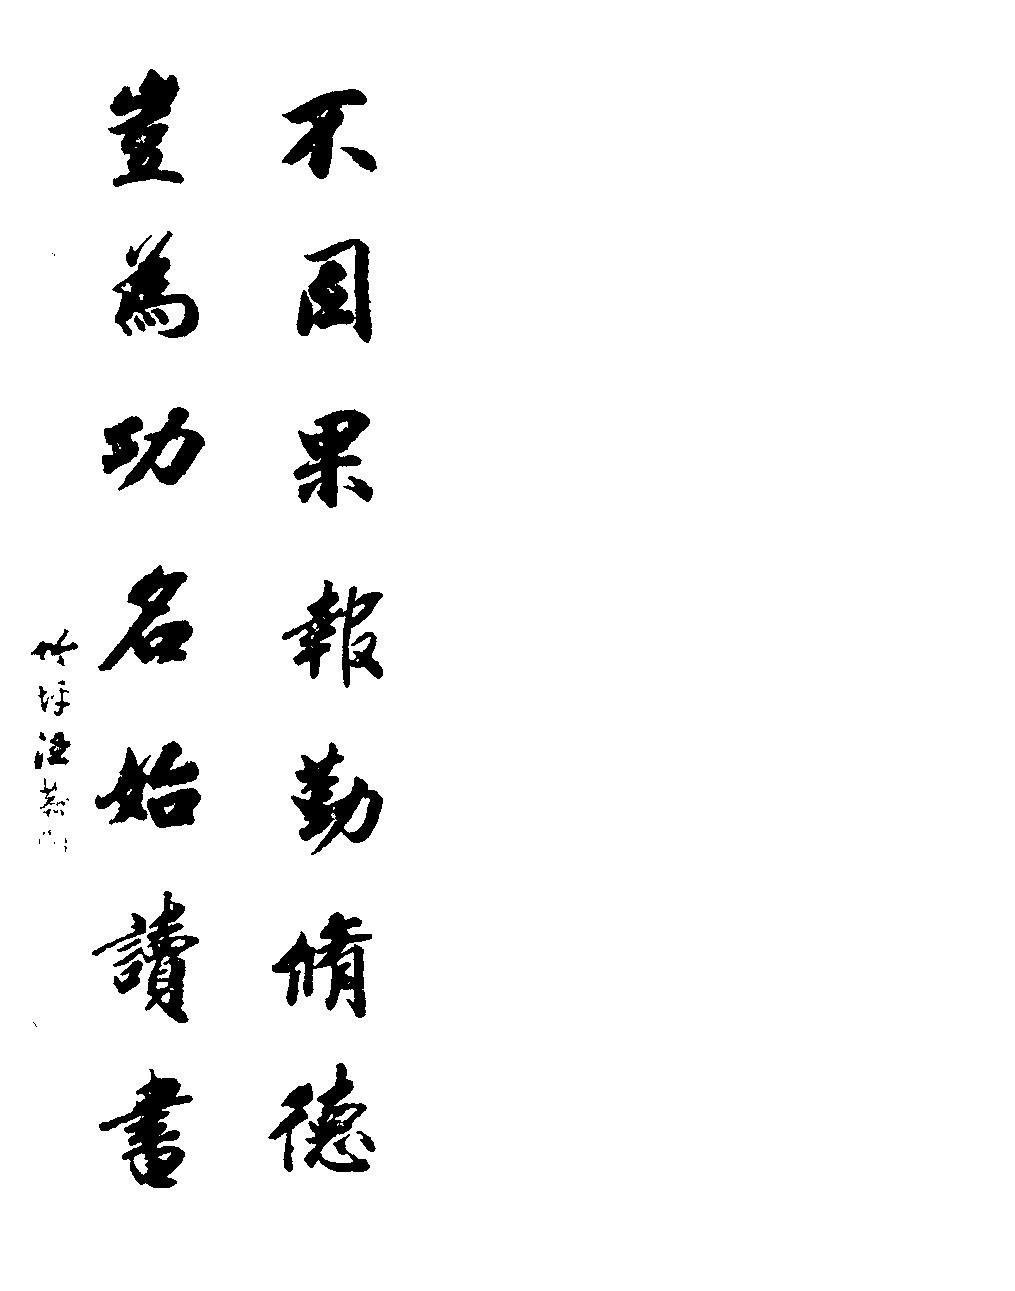 不因果報勤修德
豈為功名始讀書
竹坪汪